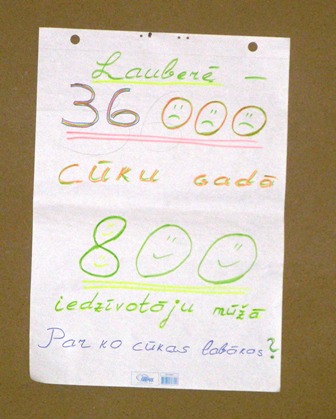 Lauberē –
36 000
CŪKU GADĀ
800
iedzīvotāju mūžā
Par ko cūkas labākas?